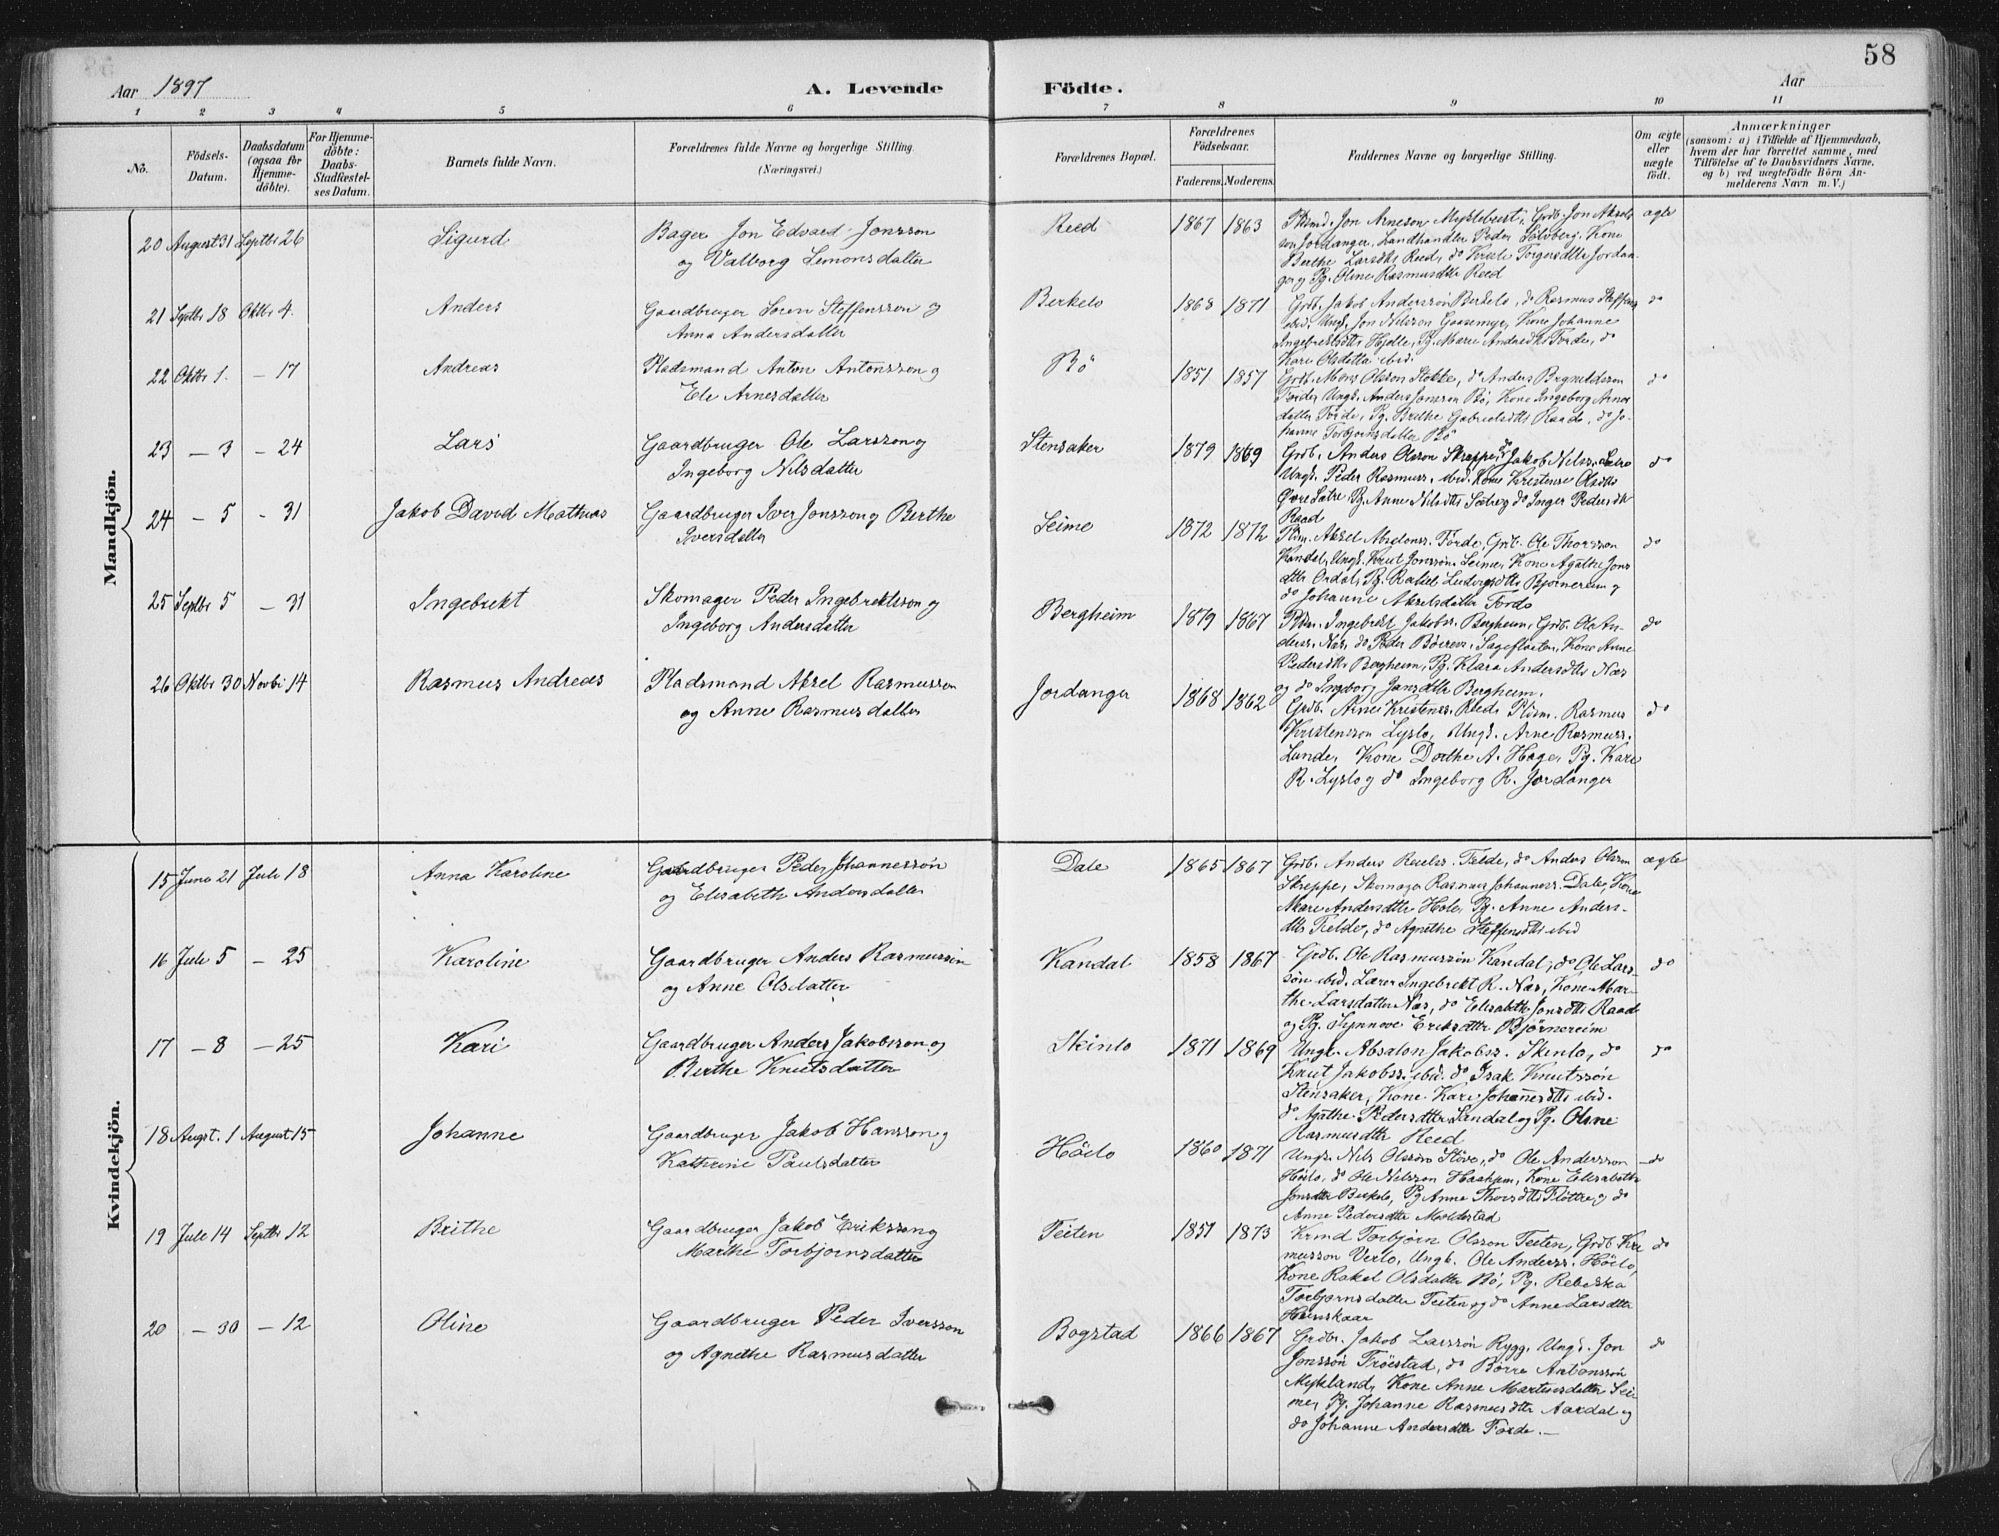 58
Aar 1897
A. Levende Födte.
Aar
1 2 3 4 5 6 7 8 9 10 11
No.
Födsels-Datum.
Daabsdatum (ogsaa for Hjemme-döbte).
For Hjemme-döbte: Daabs-Stadfæstelses Datum.
Barnets fulde Navn.
Forældrenes fulde Navne og borgerlige Stilling. (Næringsvei.)
Forældrenes Bopæl.
Forældrenes Födselsaar.
Faderens. Moderens.
Faddernes Navne og borgerlige Stilling.
Om ægte eller uægte födt.
Anmærkninger
(saasom: a) i Tilfælde af Hjemmedaab, hvem der har forrettet samme, med Tilföielse af to Daabsvidners Navne, og b) ved uægtefödte Börn Anmelderens Navn m. V.)
Mandkjön.
20 August 31 Septbr 26 Sigurd Bager Jon Edvard Jonsson
og Valborg Simonsdatter
Reed 1867 1863
Jon Arneson Myklebust, Grdb. Jon Aksels
son Jordanger, Landhandler Peder Solvberg, Kone
Berthe Larsdtr Reed, do Kristi Torgersdtr Jordan-
ger og Pg. Oline Rasmusdtr Reed
ægte
21 Septbr 18 Oktbr 4. Anders Gaardbruger Søren Steffensson og
Anna Andersdatter
Berkelo 1868 1871
Grdb. Jakob Anderssøn Berkelo, do Rasmus Steffens
ibid. Ungk. Jon Nilsson Gaasemyr, Kone Johanne
Ingebretsdtr Hjelle, Pg. Marie Andersdtr Førde, do
Kari Olsdatter ibid.
do
22 Oktbr 1. – 17 Andreas Pladsmand Anton Antonsson og
Eli Arnesdatter
Bö 1851 1857
Grdb. Mons Olsson Stokke, do Anders
Førde, Ungk. Anders Jonsson Bö, Kone Ingeborg Arnes
datter Førde, Pg. Brithe Gabrielsdtr Raade, do Jo-
hanne Torbjørnsdatter Bö
do
23 – 3 – 24 Lars Gaardbruger Ole Larsson og
Ingeborg Nilsdatter
Stensaker 1879 1869
Grdb. Anders Olsson Skreppe, do Jakob Nilss. Sætre
Ungk. Peder Rasmuss. ibid. Kone Kristense Olsdtr
Øvre Sætre Pg. Anne Nilsdtr do Inger Pedersdtr
Raad
do
24 – 5 – 31 Jakob David Mathias Gaardbruger Iver Jonsson og Berthe
Iversdatter
Seime 1872 1872
Aksel Absalons. Førde, Grdb. Ole Thorsson
Kandal, Ungk. Knut Jonssøn Seime, Kone Agathe Jons
dtr Ordal, Pg. Rakel Ludvigsdtr Bjørnereim og
do Johanne Akselsdatter Førde
do
25 Septbr 5 – 31 Ingebrekt Skomager Peder Ingebrektsson og
Ingeborg Andersdatter
Bergheim 1879 1867
Ingebrekt Jakobss. Bergheim, Grdb. Ole An-
derss. Næs, do Peder Kone Anne
Pedersdtr Bergheim, Pg. Klara Andersdtr Næs
og do Ingeborg Jansdtr Bergheim.
do
26 Oktbr 30 Novbr 14 Rasmus Andreas Pladsmand Aksel Rasmusson
og Anne Rasmusdatter
Jordanger 1868 1862
Grdb. Arne Kristens. Reed, Rasmus
Kristensson Lyslo, Ungk. Arne Rasmuss.
Lunde, Kone Dorthe A. Hage, Pg. Kari
R. Lyslo og do Ingeborg R. Jordanger
do
Kvindekjön.
15 Juni 21 Juli 18 Anna Karoline Gaardbruger Peder Johannessøn
og Elisabeth Andersdatter
Dale 1865 1867
Grdb. Anders Felde, do Anders Olsson
Skreppe, Skomager Rasmus Johanness. Dale, Kone
Mari Andersdtr Hole, Pg. Anne Anders-
dtr Felde, do Agnethe Steffensdtr ibid
ægte
16 Juli 5 – 25 Karoline Gaardbruger Anders Rasmussøn
og Anne Olsdatter
Kandal 1858 1867
Grdb. Ole Rasmussøn Kandal, do Ole Lars-
søn ibid. Lærer Ingebrekt R. Næs, Kone Mar-
the Larsdatter Næs, do Elisabeth Jonsdtr Raad
og Pg. Synnøve Eriksdtr Bjørnereim
do
17 – 8 – 25 Kari Gaardbruger Anders Jakobsson og
Berthe Knutsdatter
Skinlo 1871 1869
Ungk. Absalon Jakobss. Skinlo, do
Knut Jakobss. ibid. do Isak Knutssøn
Stensaker, Kone Kari Johannesdtr ibid.
do Agathe Pedersdtr Sandal og Pg. Oline
Rasmusdtr Reed
do
18 Augst. 1 August 15 Johanne Gaardbruger Jakob Hansson og
Kathrine Paulsdatter
Höilo 1860 1871
Ungk. Nils Olsson Støve, do Ole Andersson
Höilo, do Ole Nilsson Haahjem, Kone Elisabeth
Jonsdtr Berkelo, Pg Anne Thorsdtr Flöttre, og do
Anne Pedersdtr Moldestad
do
19 Juli 14 Septbr 12 Brithe Gaardbruger Jakob Eriksson og
Marthe Torbjørnsdatter
Teiten 1851 1873
Torbjørn Olsson Teiten, Grdb. Ras-
musson Verlo, Ungk. Ole Anderss. Höilo,
Kone Rakel Olsdatter Bö, Pg. Rebekka
Torbjørnsdatter Teiten og do Anne Larsdtr
do
20 – 30 – 12 Oline Gaardbruger Peder Iversson
og Agnethe Rasmusdatter
Bogstad 1866 1867
Grdbr. Jakob Larssøn Rygg, Ungk. Jon
Jonssøn Fröestad, do Börre Antonssøn
Mykland, Kone Anne Martinsdatter Sei-
me, Pg. Johanne Rasmusdtr Aardal og
do Johanne Andersdtr Førde. –
do